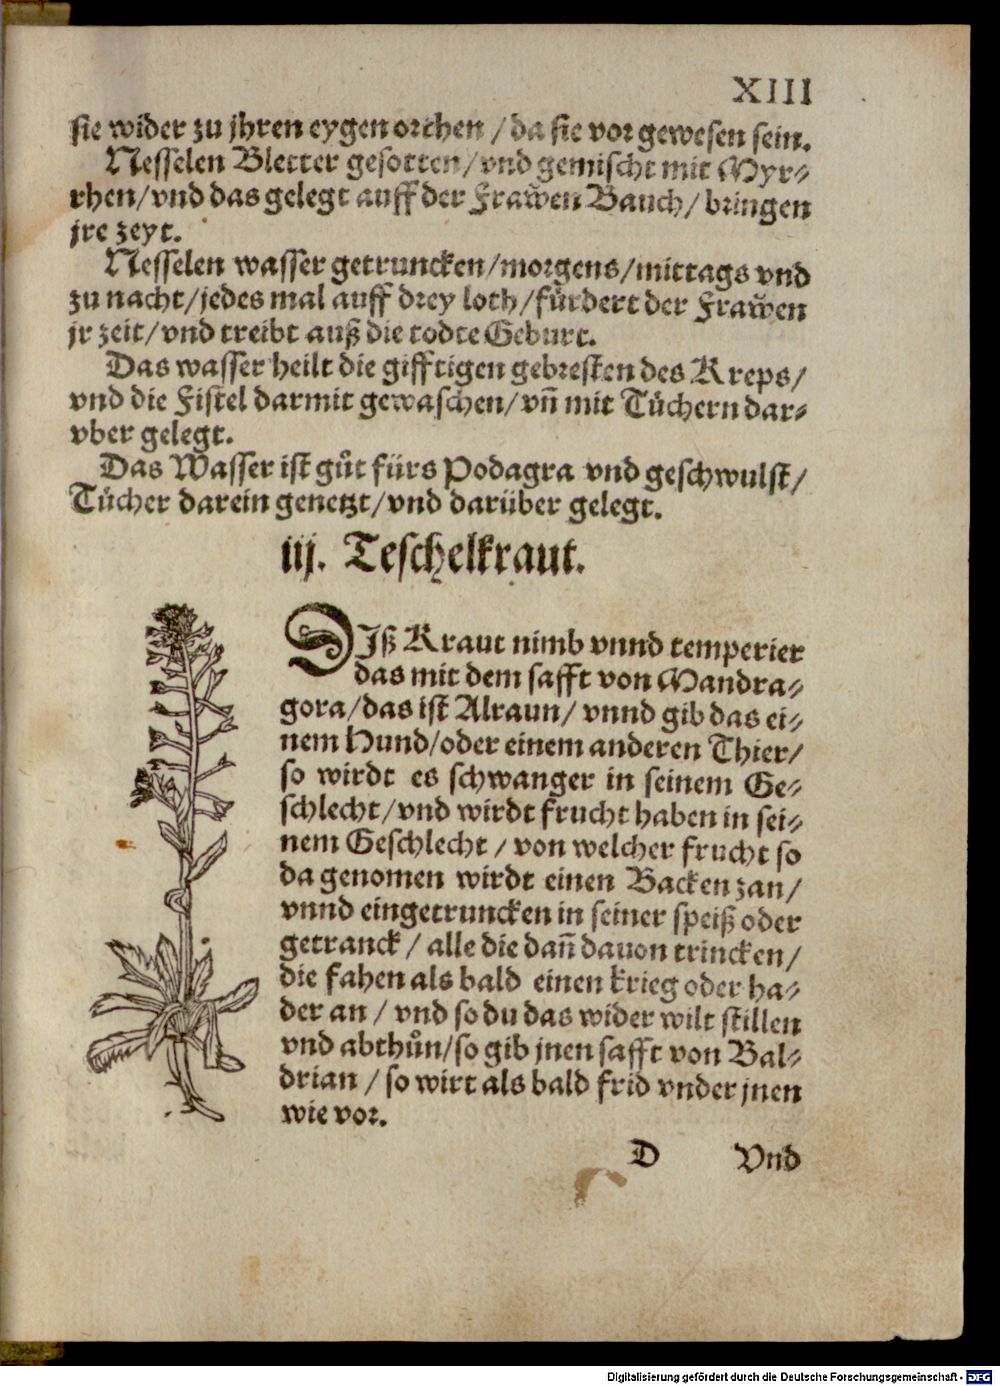 XIII
sie wider zu jhren eygen orthen / da sie vor gewesen sein.
Nesselen Bletter gesotten / vnd gemischt mit Myr⸗
rhen / vnd das gelegt auff der Frawen Bauch / bringen
jre zeyt.
Nesselen wasser getruncken / morgens / mittags vnd
zu nacht / jedes mal auff drey loth / fürdert der Frawen
jr zeit / vnd treibt auß die todte Geburt.
Das wasser heilt die gifftigen gebresten des Kreps /
vnd die Fistel darmit gewaschen / vn̄ mit Tůchern dar⸗
vber gelegt.
Das Wasser ist gůt fürs Podagra vnd geschwulst /
Tůcher darein genetzt / vnd darüber gelegt.
iij. Teschelkraut.
DIß Kraut nimb vnnd temperier
das mit dem safft von Mandra⸗
gora / das ist Alraun / vnnd gib das ei⸗
nem Hund / oder einem anderen Thier /
so wirdt es schwanger in seinem Ge⸗
schlecht / vnd wirdt frucht haben in sei⸗
nem Geschlecht / von welcher frucht so
da genomen wirdt einen Backen zan /
vnnd eingetruncken in seiner speiß oder
getranck / alle die dan̄ dauon trincken /
die fahen als bald einen krieg oder ha⸗
der an / vnd so du das wider wilt stillen
vnd abthůn / so gib jnen safft von Bal⸗
drian / so wirt als bald frid vnder jnen
wie vor.
D Vnd
Digitalisierung gefördert durch die Deutsche Forschungsgemeinschaft - DFG